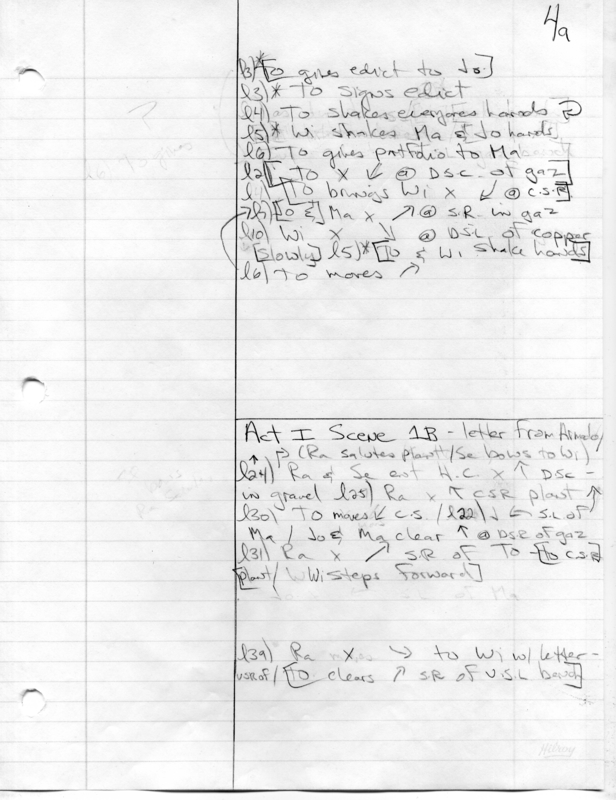 4a
l3)* [To gives edict to Jo.]
l3)* To signs edict
l4) To shakes everyones hands
l5)* Wi shakes Ma & Jo hands
l6) To gives portfolio to Ma
l2) [To X ↙ @ DSC. of gaz]
l.) To brings Wi X ↙ @ C.S.R
→l7) [To &] Ma x ↗ @ S.R. in gaz
l10) Wi X ↘ @ DSL of copper
[Slowly] l5)* [To & Wi Shake hands]
l6) To moves ↗
Act I Scene 1B - letter from Armado/
↑ (Ra salutes plant/Se bows to Wi)
l24) Ra & Se ent H.C. X ↑ DSC -
in gravel l25) Ra x ↑ CSR plant ↑
l30) To moves ↙ C.S. / l22) ↓ ← S.L of
Ma / Jo & Ma clear ↑ @ DSR of gaz
l31) Ra x ↗ S.R of To - [to C.S.R
plant / Wi steps forward]
l39) Ra X ↘ to Wi w/ letter -
USR of / [To clears ↗ S.R of U.S.L bench]
Hilroy